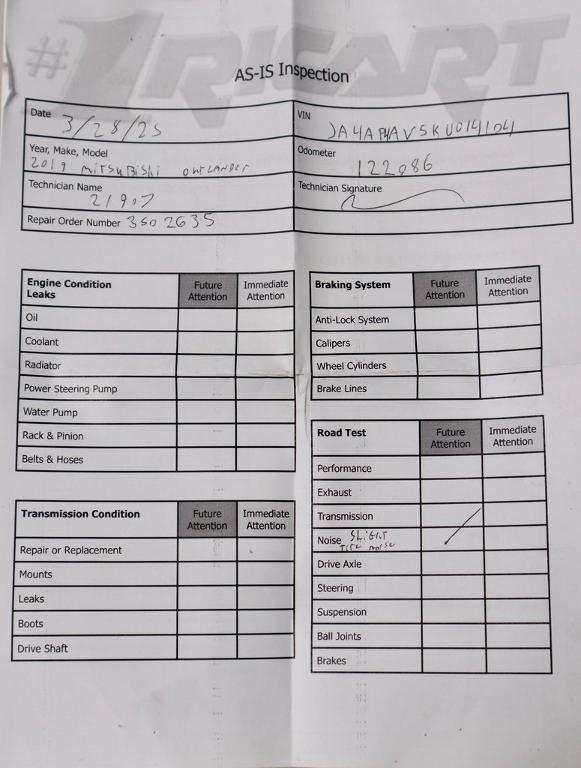 #1 RICART
AS-IS Inspection
Date 3/28/25
VIN JA4AP4AV5KU014104
Year, Make, Model
2019 mitsuBishi outLANDER
Odometer 122086
Technician Name
21907
Technician Signature
Repair Order Number 3502635
Engine Condition Leaks Future Attention Immediate Attention
Oil
Coolant
Radiator
Power Steering Pump
Water Pump
Rack & Pinion
Belts & Hoses
Transmission Condition Future Attention Immediate Attention
Repair or Replacement
Mounts
Leaks
Boots
Drive Shaft
Braking System Future Attention Immediate Attention
Anti-Lock System
Calipers
Wheel Cylinders
Brake Lines
Road Test Future Attention Immediate Attention
Performance
Exhaust
Transmission
Noise SLiGhT
Tire noise
Drive Axle
Steering
Suspension
Ball Joints
Brakes